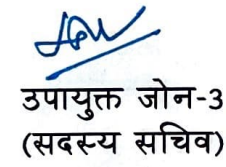 उपायुक्त जोन-3
(सदस्य सचिव)